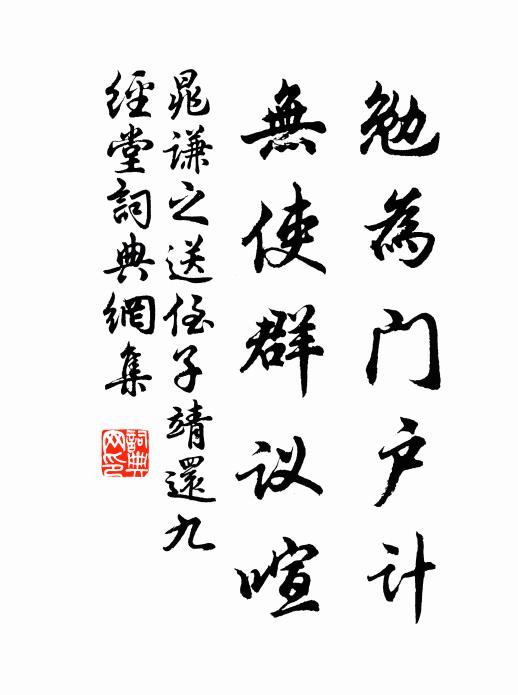 勉為门户计
無使群议喧
晁谦之送侄子靖還九
經堂詞典網集
詞典
网印